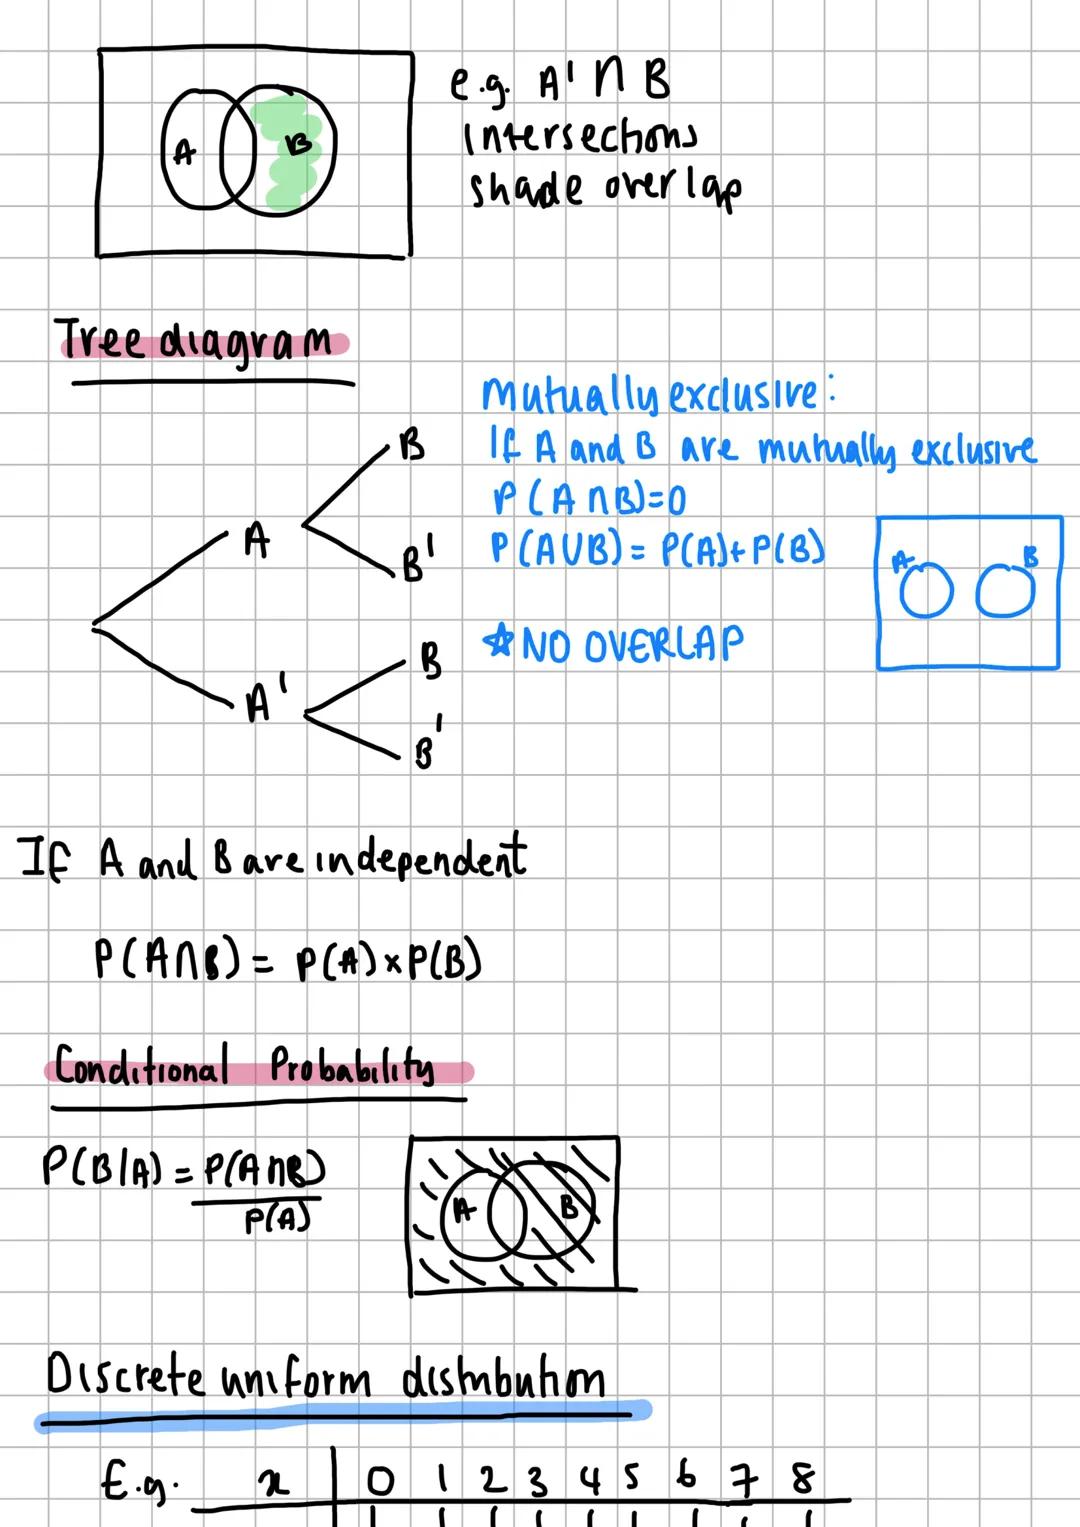 e.g. A' ∩ B
A B
Intersections
shade overlap
Tree diagram
Mutually exclusive:
If A and B are mutually exclusive
P(A∩B)=0
P(A∪B) = P(A)+P(B)
A B
☆ NO OVERLAP
B
A
B'
B
A'
B'
If A and B are independent
P(A∩B) = P(A)×P(B)
Conditional Probability
P(B|A) = P(A∩B)
P(A)
A B
Discrete uniform distribution
E.g. x 0 1 2 3 4 5 6 7 8